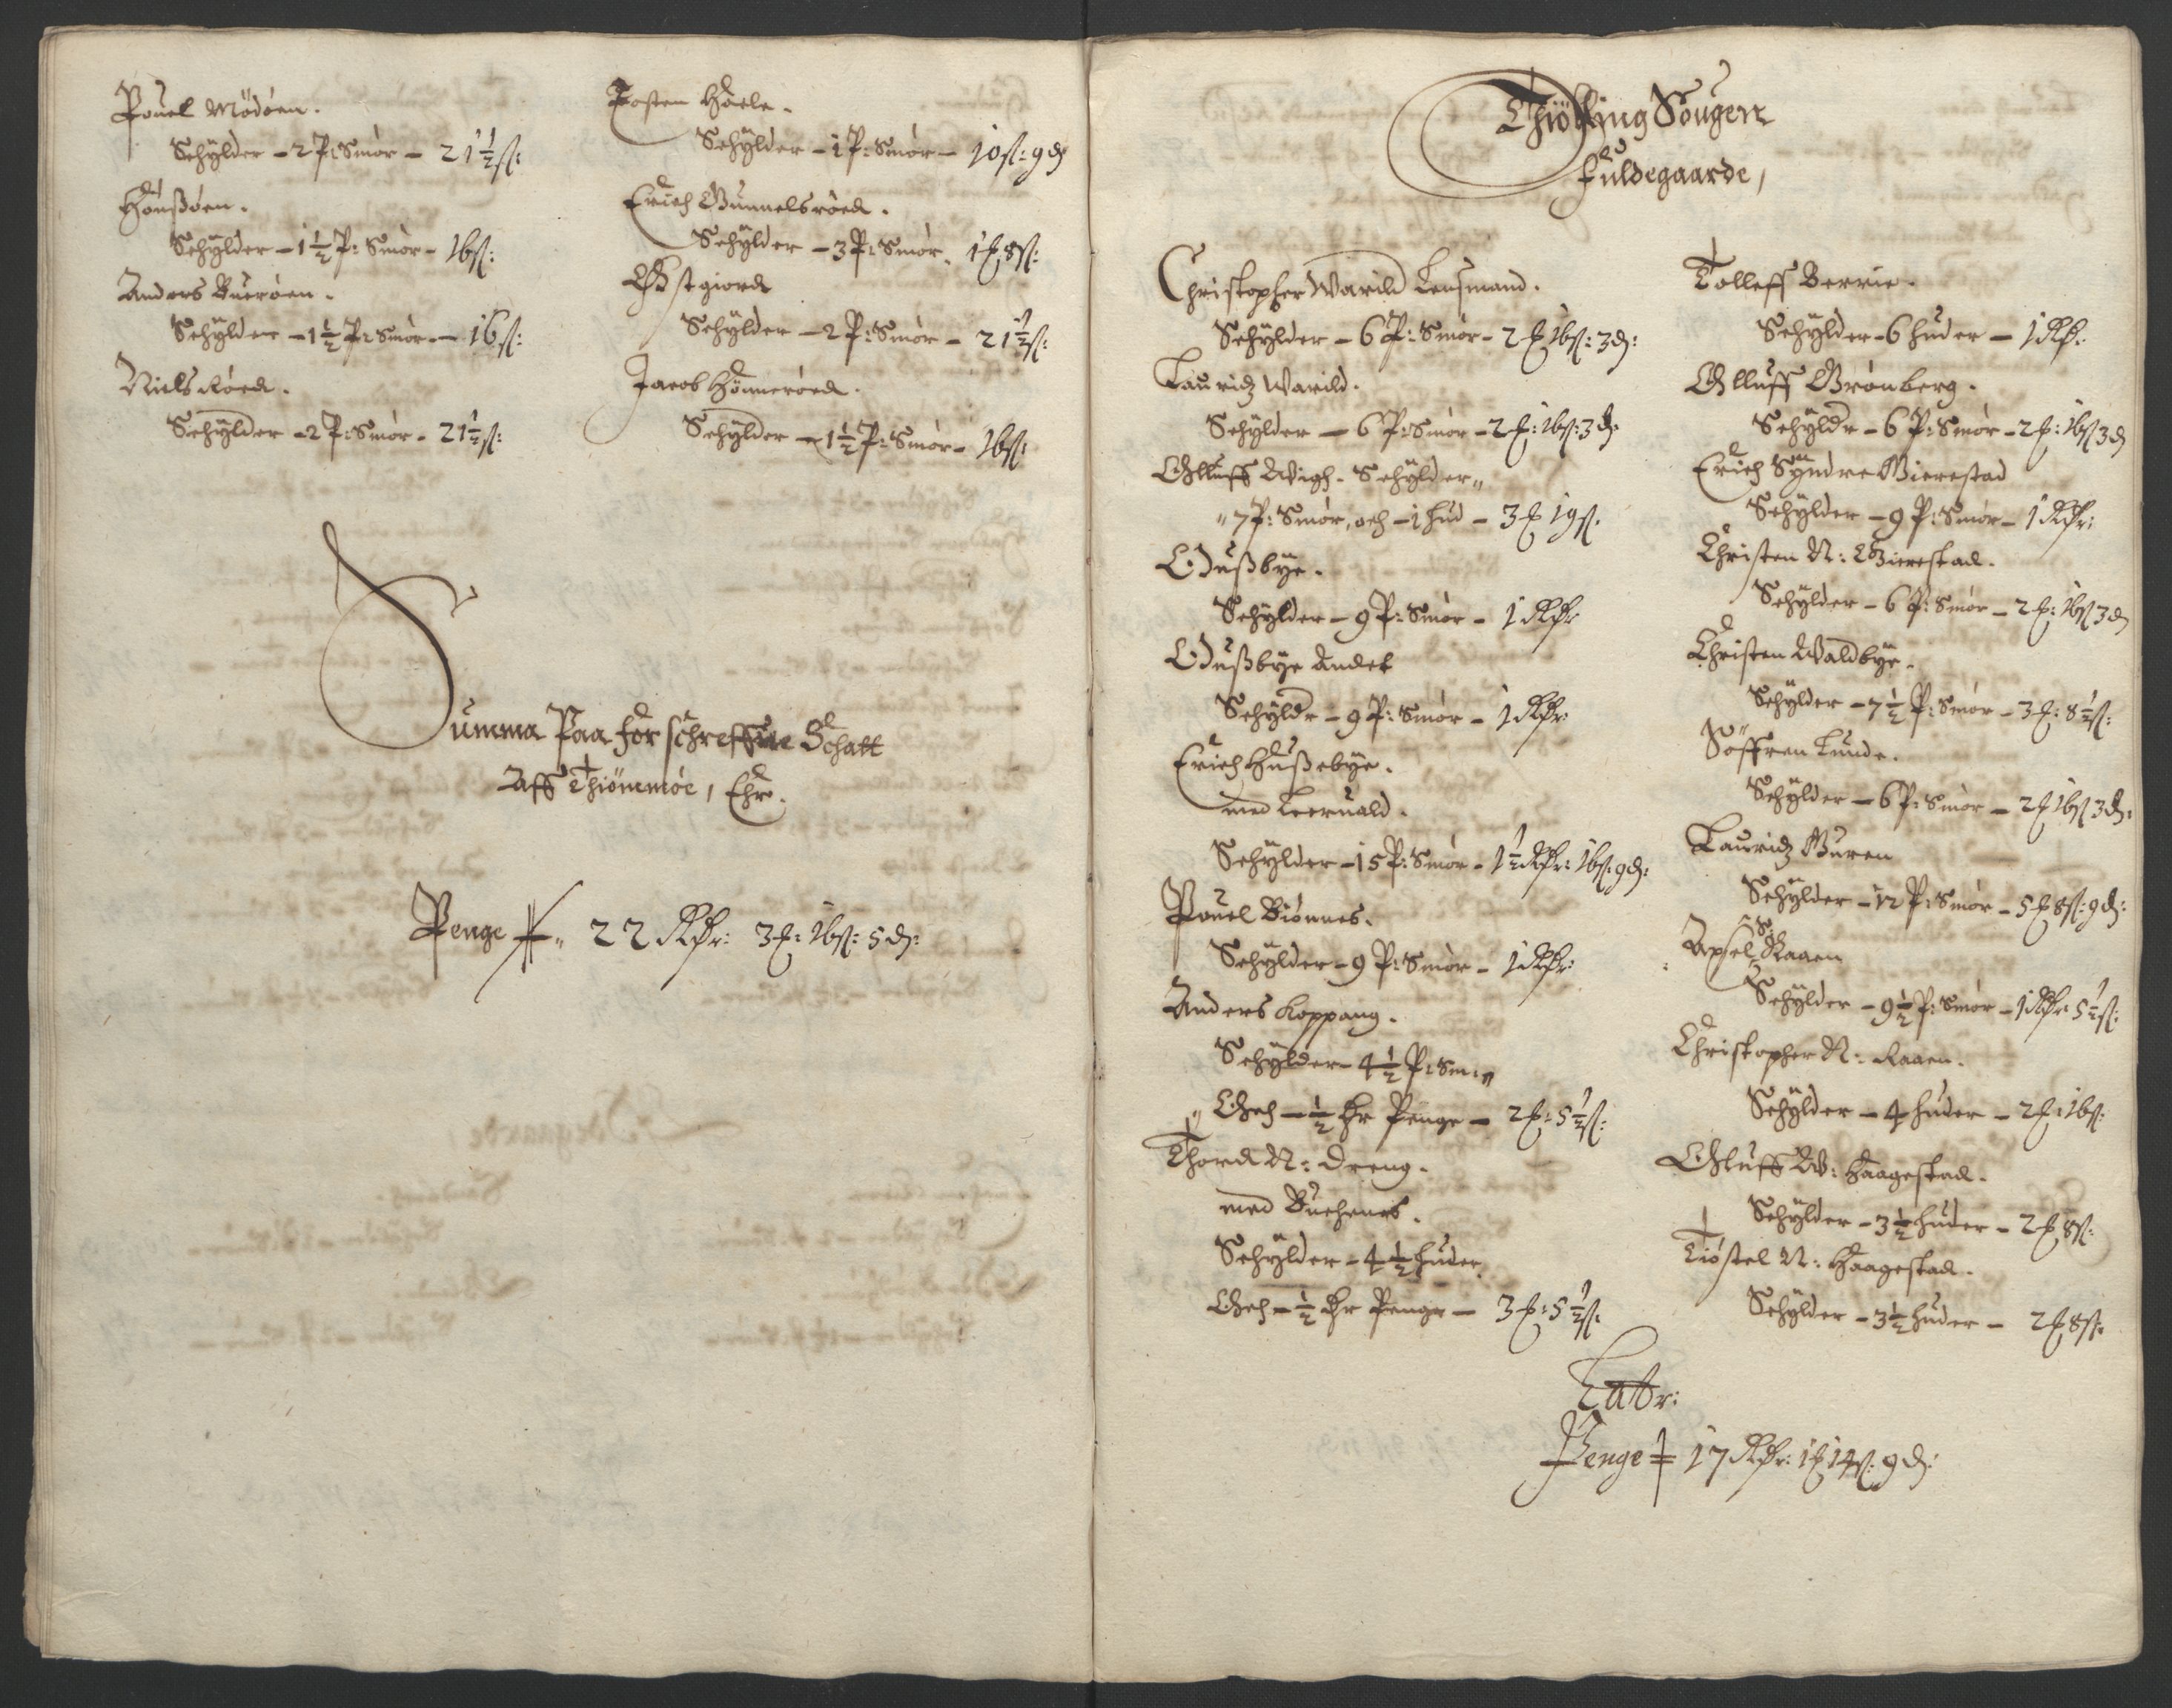 Pouel Mödöen.
Schÿlder – 2 P: Smör – 21½ ß:
Hönßöen.
Schÿlder – 1½ P: Smör – 16 ß:
Anders Bueröen.
Schÿlder – 1½ P: Smör – 16 ß:
Niels Röed.
Schÿlder – 2 P: Smör – 21½ ß:
Tosten Hoele.
Schÿlder – 1 P: Smör – 10 ß: 9 d
Erich Gunnelsröed.
Schÿlder – 3 P: Smör – 1 £ 8 ß:
Østgiord
Schÿlder – 2 P: Smör – 21½ ß:
Jacob Hönneröed.
Schÿlder – 1½ P: Smör – 16 ß:
Summa Paa forschreffne Schatt
Aff Thiömmöe, Ehr.
Penge 22 Rdr: 3 £: 16 ß: 5 d:
Thiölling Sougen
Fuldegaarde,
Christopher Warild Lensmand.
Schÿlder – 6 P: Smör – 2 £ 16 ß: 3 d:
Lauridz Warild.
Schÿlder – 6 P: Smör – 2 £: 16 ß: 3 d:
Olluff Wigh. Schÿlder
7 P: Smör, och – 1 hud – 3 £ 19 ß.
Hußbÿe.
Schÿlder – 9 P: Smör – 1 Rdr
Hußbÿe Andet
Schÿldr – 9 P: Smör – 1 Rdr:
Erich Hußebÿe.
med Leeruald.
Schÿlder – 15 P: Smör – 1½ Rdr: 16 ß: 9 d:
Pouel Biönnes.
Schÿlder – 9 P: Smör – 1 Rdr:
Anders Koppang.
Schÿlder – 4½ P: Sm:
Och – ½ hr Penge – 2 £: 5½ ß:
Thord N: Dreng.
med Buehenes.
Schÿlder – 4½ huder
Och – ½ hr Penge – 3 £: 5½ ß:
Tolleff Berrie.
Schÿlder – 6 huder – 1 Rdr:
Olluff Grönberg.
Schÿldr – 6 P: Smör – 2 £: 16 ß 3 d
Erich Sÿndre Gierestad
Schÿlder – 9 P: Smör – 1 Rdr:
Christen N: Gierestad.
Schÿlder – 6 P: Smör – 2 £: 16 ß 3 d
Christen Waldbÿe.
Schÿlder – 7½ P: Smör – 3 £: 8½ ß:
Söffren Lunde.
Schÿlder – 6 P: Smör – 2 £ 16 ß 3 d:
Lauridz Guren
Schÿlder – 12 P: Smör – 5 £ 8 ß: 9 d:
Axsel S: Raaen
Schÿlder – 9½ P: Smör – 1 Rdr 5½ ß:
Christopher N: Raaen.
Schÿlder – 4 huder – 2 £: 16 ß:
Olluff W: Haagestad.
Schÿlder – 3½ huder – 2 £ 8 ß:
Tiöstel N: Haagestad.
Schÿlder – 3½ huder – 2 £ 8 ß:
Latr:
Penge 17 Rdr: 1 £ 14 ß: 9 d: